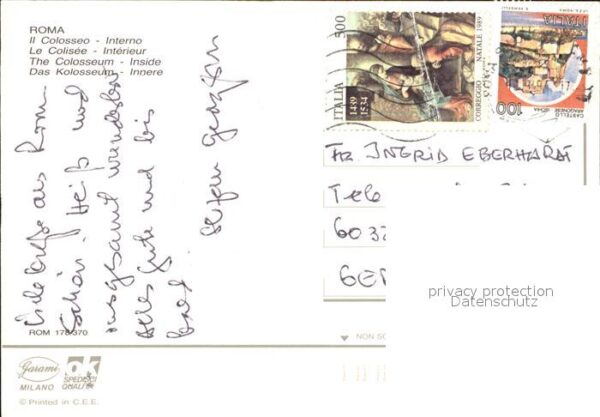 ROMA
Il Colosseo - Interno
Le Colisée - Intérieur
The Colosseum - Inside
Das Kolosseum - Innere
Liebe Grüße aus Rom.
Schön. Heiß und
insgesamt wunderbar
Alles Gute und bis
bald.
ROM 178/370
Garami
MILANO
ok
SPEDISCI
QUALITÀ
© Printed in C.E.E.
500
ITALIA
1489
1534
CORREGGIO NATALE 1989
ITALIA
100
CASTELLO
ARAGONESE
ISCHIA
INGRID EBERHARDT
Tele
603
GER
NON SC
privacy protection
Datenschutz